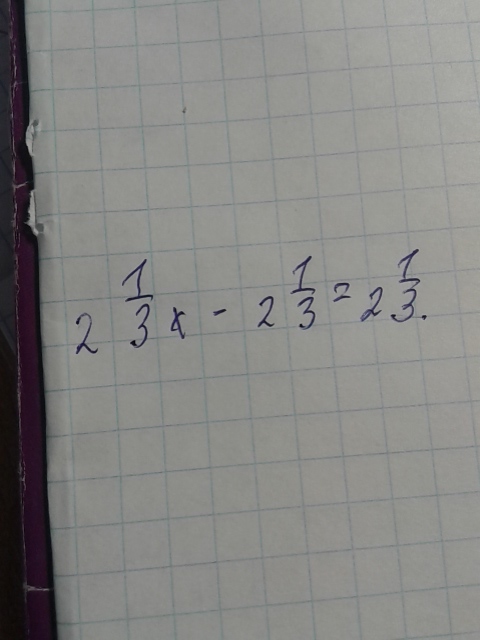 2 1/3 x - 2 1/3 = 2 1/3.